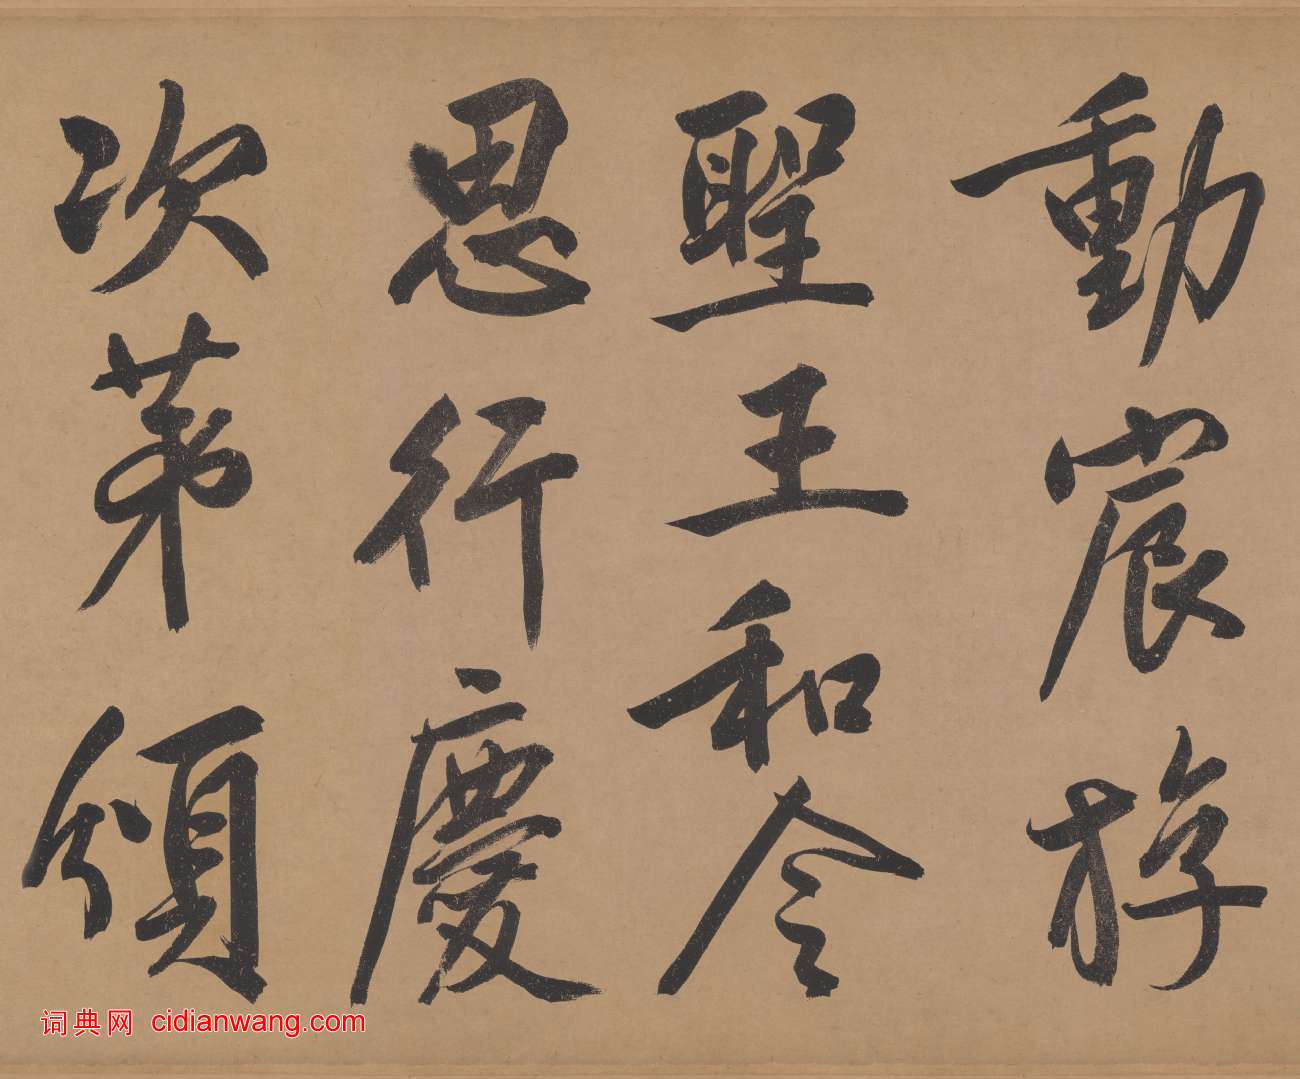 動宸斿
聖王和令
思行慶
次苐頒
词典网 cidianwang.com